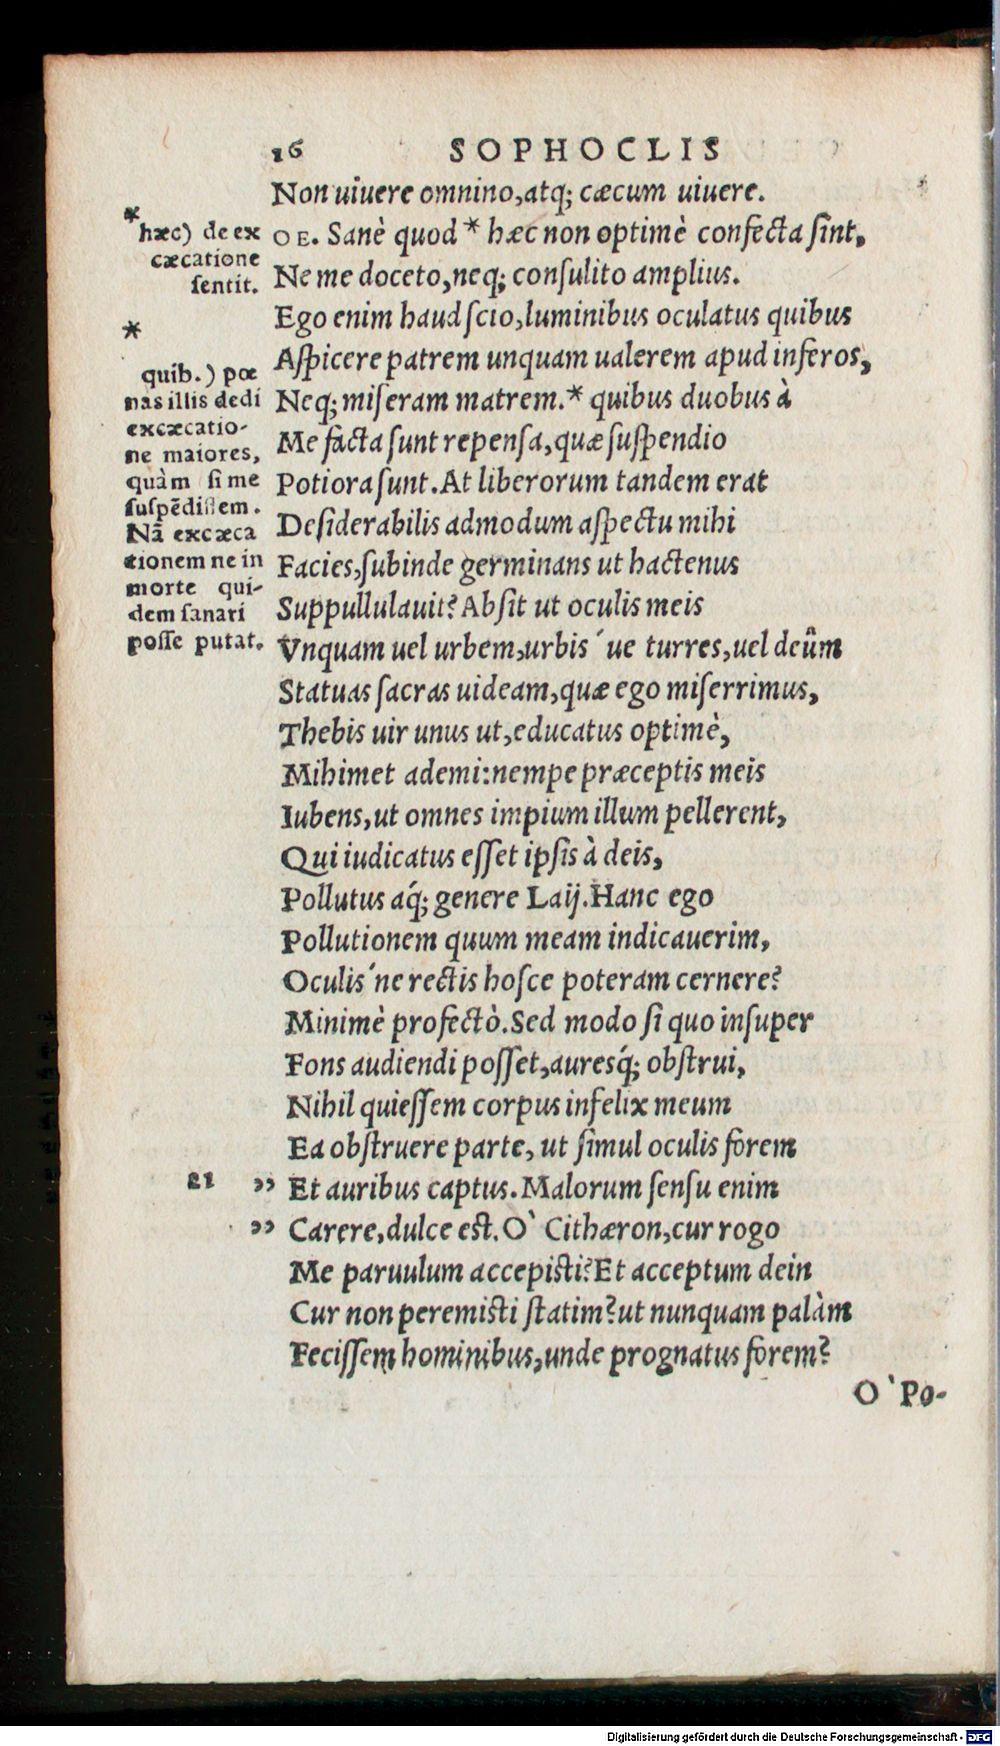 16 SOPHOCLIS
Non uiuere omnino,atq; cæcum uiuere.
OE. Sanè quod * hæc non optimè confecta ſint,
Ne me doceto,neq; conſulito amplius.
Ego enim haud ſcio,luminibus oculatus quibus
Aſpicere patrem unquam ualerem apud inferos,
Neq; miſeram matrem.* quibus duobus à
Me facta ſunt repenſa,quæ ſuſpendio
Potiora ſunt.At liberorum tandem erat
Deſiderabilis admodum aſpectu mihi
Facies,ſubinde germinans ut hactenus
Suppullulauit? Abſit ut oculis meis
Vnquam uel urbem,urbis ́ue turres,uel deûm
Statuas ſacras uideam,quæ ego miſerrimus,
Thebis uir unus ut,educatus optimè,
Mihimet ademi:nempe præceptis meis
Iubens,ut omnes impium illum pellerent,
Qui iudicatus eſſet ipſis à deis,
Pollutus aq́; genere Laij.Hanc ego
Pollutionem quum meam indicauerim,
Oculis ́ne rectis hoſce poteram cernere?
Minimè profectò.Sed modo ſi quo inſuper
Fons audiendi poſſet,auresq́; obſtrui,
Nihil quieſſem corpus infelix meum
Ea obſtruere parte, ut ſimul oculis forem
21 ” Et auribus captus.Malorum ſenſu enim
” Carere,dulce eſt.O` Cithæron,cur rogo
Me paruulum accepiſti?Et acceptum dein
Cur non peremiſti ſtatim?ut nunquam palàm
Feciſſem hominibus,unde prognatus forem?
O` Po-
*
hæc) de ex
cæcatione
ſentit.
*
quib.) pœ
nas illis dedi
excæcatio-
ne maiores,
quàm ſi me
ſuſpẽdiſſem.
Nã excæca
tionem ne in
morte qui-
dem ſanari
poſſe putat.
Digitalisierung gefördert durch die Deutsche Forschungsgemeinschaft - DFG